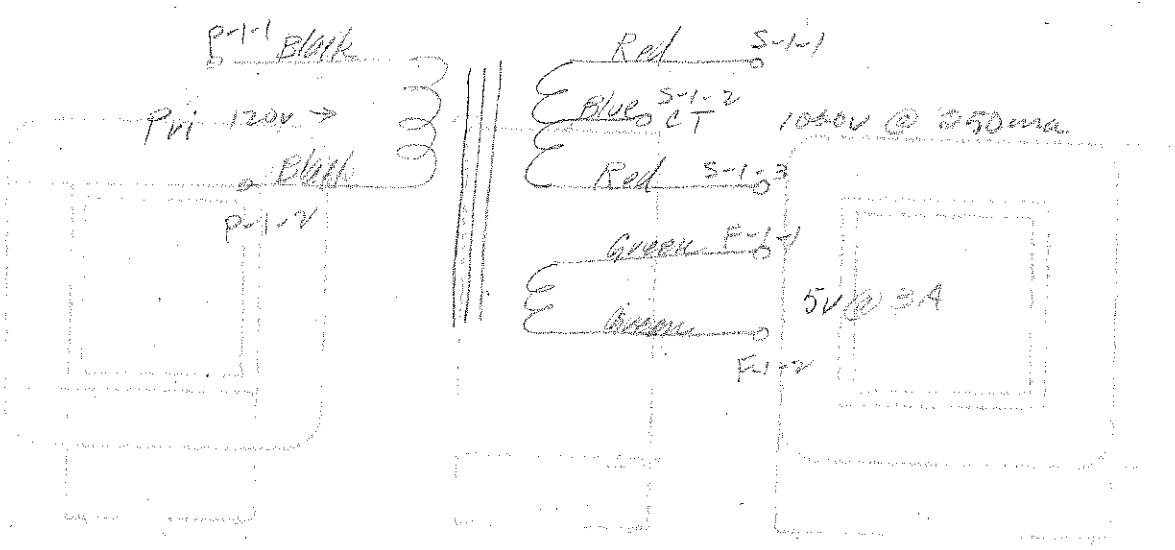 P-1-1 Black
Pri 120v →
Black
P-1-2
Red S-1-1
Blue S-1-2
CT
Red S-1-3
Green F-1-1
5v @ 3A
Green
F-1-2